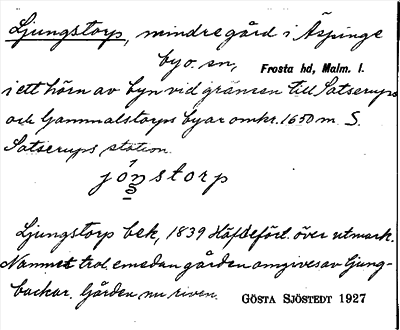 Ljungstorp, mindre gård i Äspinge
by o. sn, Frosta hd, Malm. l.
i ett hörn av byn vid gränsen till Satserups
och Gammalstorps byar omkr. 1650 m. S.
Satserups station.
joṉstorp
Ljungstorp bek, 1839 Häfdeförl. över utmark.
Namnet trol. emedan gården omgives av ljung-
backar. Gården nu riven. GÖSTA SJÖSTEDT 1927